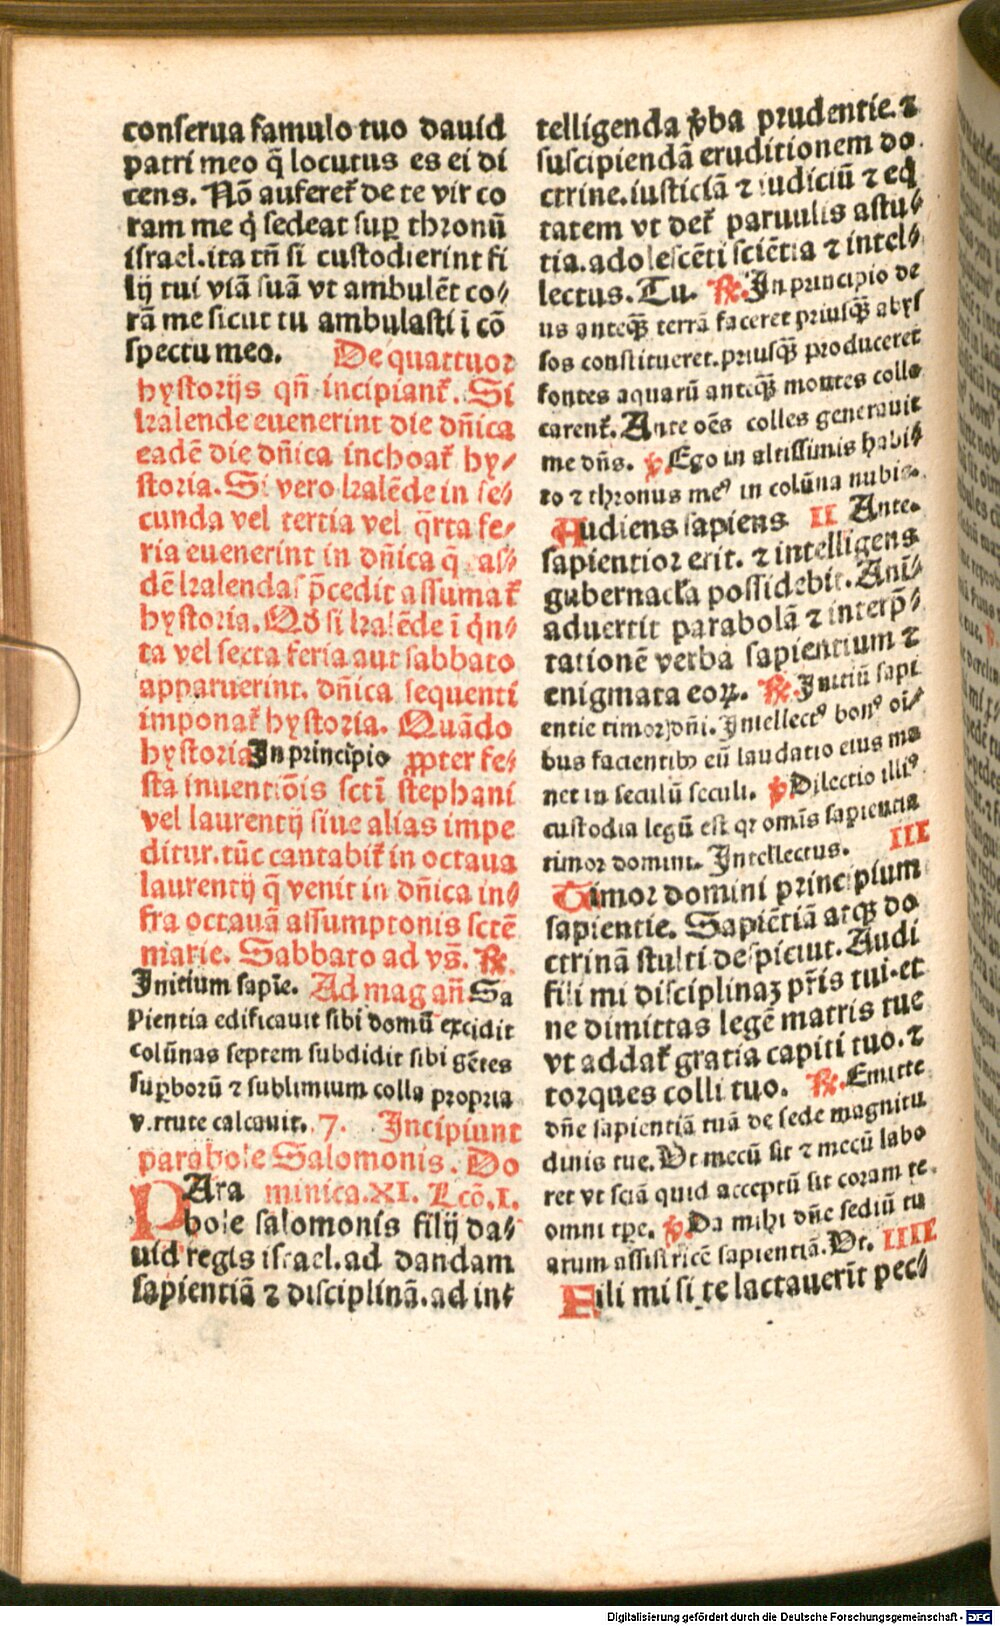 conserua famulo tuo dauid
patri meo q̃ locutus es ei di
cens. Nõ auferet᷑ de te vir co
ram me q̇ sedeat sup̱ thronũ
israel.ita tñ si custodierint fi
lij tui viã suã vt ambulẽt co⸗
rã me sicut tu ambulasti ĩ cõ
spectu meo. De quattuor
hystorijs qñ incipiant᷑. Si
kalende euenerint die dñica
eadẽ die dñica inchoat᷑ hy⸗
storia. Si vero kalẽde in se⸗
cunda vel tertia vel q̃rta fe⸗
ria euenerint in dñica q̃ as⸗
dẽ kalendas p̃cedit assumat᷑
hystoria. Qđ si kalẽde ĩ q̇n⸗
ta vel sexta feria aut sabbato
apparuerint. dñica sequenti
imponat᷑ hystoria. Quãdo
hystoria In principio ꝓpter fe⸗
sta inuentiõis sctĩ stephani
vel laurentij siue alias impe
ditur.tũc cantabit᷑ in octaua
laurentij q̃ venit in dñica in⸗
fra octauã assumptonis sctẽ
marie. Sabbato ad vs̃. ℟.
Initium sapiẽ. Ad mag añ Sa
pientia edificauit sibi domũ excidit
colũnas septem subdidit sibi gẽtes
sup̱borũ ⁊ sublimium colla propria
v.rtute calcauit. 7. Incipiunt
parabole Salomonis. Do
PAra minica.XI. Lcõ.I.
bole salomonis filij da⸗
uid regis israel.ad dandam
sapientiã ⁊ disciplinã.ad int
telligenda v̾ba prudentie.⁊
suscipiendã eruditionem do
ctrine.iusticiã ⁊ iudiciũ ⁊ eq̃
tatem vt det᷑ paruulis astu⸗
tia.adolescẽti sciẽtia ⁊ intel⸗
lectus. Tu. ℟. In principio de
us anteq̃ʒ terrã faceret priusq̃ʒ abys
sos constitueret.priusq̃ʒ produceret
fontes aquarũ anteq̃ʒ montes collo
carent᷑. Ante oẽs colles generauit
me dñs. ℣. Ego in altissimis habi⸗
to ⁊ thronus meꝰ in colũna nubis.
Audiens sapiens II Ante.
sapientior erit. ⁊ intelligens
gubernacl̃a possidebit. Ani⸗
aduertit parabolã ⁊ interp̃⸗
tationẽ verba sapientium ⁊
enigmata eoꝝ. ℟. Initiũ sapi
entie timor dñi. Intellectꝰ bonꝰ oĩ⸗
bus facientibꝰ eũ laudatio eius ma
net in seculũ seculi. ℣. Dilectio illiꝰ
custodia legũ est qꝛ omĩs sapientia
timor domini. Intellectus. III
Timor domini principium
sapientie. Sapiẽtiã atqʒ do
ctrinã stulti despiciũt. Audi
fili mi disciplinaʒ pr̃is tui.et
ne dimittas legẽ matris tue
vt addat᷑ gratia capiti tuo.⁊
torques colli tuo. ℟. Emitte
dñe sapientiã tuã de sede magnitu
dinis tue. Vt mecũ sit ⁊ mecũ labo
ret vt sciã quid acceptũ sit coram te
omni tp̃e. ℣. Da mihi dñe sediũ tu
arum assistricẽ sapientiã. Vt. IIII
Fili mi si te lactauerĩt pec⸗
Digitalisierung gefördert durch die Deutsche Forschungsgemeinschaft - DFG